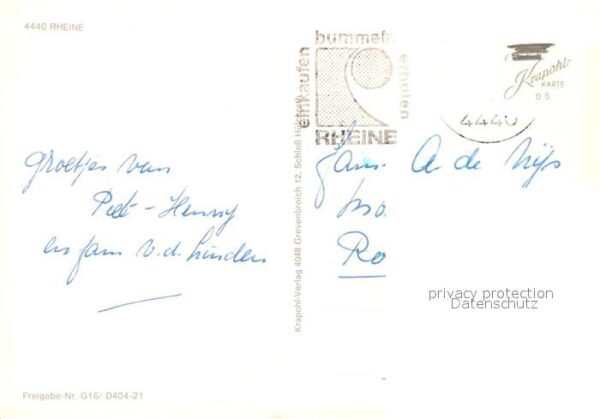 4440 RHEINE
bummeln
einkaufen
erholen
RHEINE
4440
Krapohl-
KARTE
05
Groetjes van
Piet - Henny
en fam v.d. Linden
Fam. A de Nijs
Ro
Krapohl-Verlag 4048 Grevenbroich 12, Schloß Hülchrath
privacy protection
Datenschutz
Freigabe-Nr. G16/ D404-21